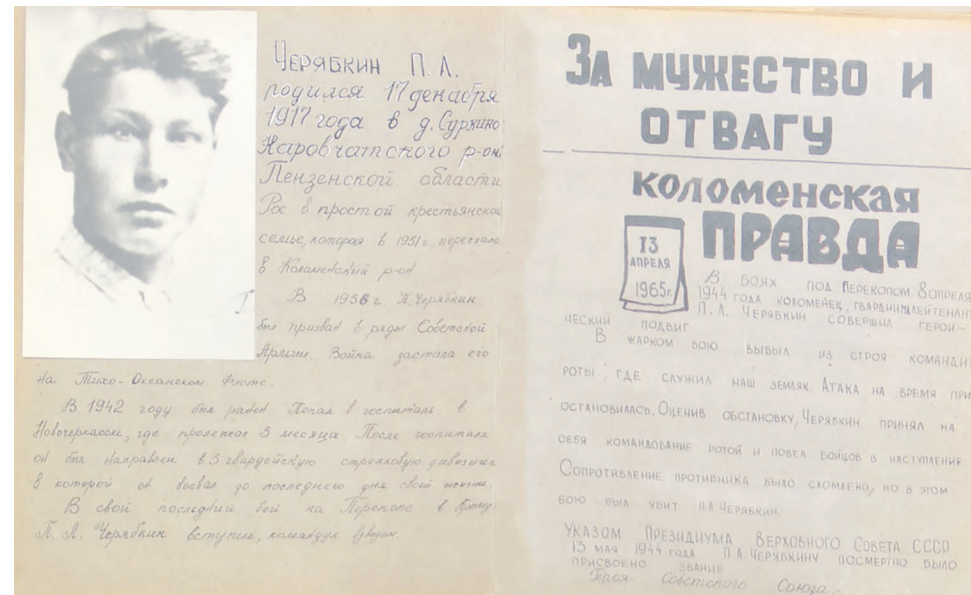 Черябкин П. Л.
родился 17 декабря
1917 года в д. Суркино
Наровчатского р-он
Пензенской области
Рос в простой крестьянской
семье, которая в 1931 г. переехала
в Коломенский р-он
В 1936 г. П. Черябкин
был призван в ряды Советской
Армии. Война застала его
на Тихо-Океанском флоте.
В 1942 году был ранен. Попал в госпиталь в
Новочеркасске, где пролежал 3 месяца. После госпиталя
он был направлен в 3 гвардейскую стрелковую дивизию
в которой он воевал до последнего дня своей жизни.
В свой последний бой на Перекопе в Крыму
П. Л. Черябкин вступил, командуя взводом.
За мужество и
отвагу
коломенская
ПРАВДА
13
АПРЕЛЯ
1965г.
В боях под Перекопом 8 апреля
1944 года коломенец, гвардии лейтенант
П. Л. Черябкин совершил герои-
ческий подвиг
В жарком бою выбыл из строя команди
роты, где служил наш земляк. Атака на время при
остановилась. Оценив обстановку, Черябкин принял на
себя командование ротой и повел бойцов в наступление
Сопротивление противника было сломлено, но в этом
бою был убит П.Л Черябкин.
Указом Президиума Верховного Совета СССР
13 мая 1944 года П Л Черябкину посмертно было
присвоено звание
Героя Советского Союза.